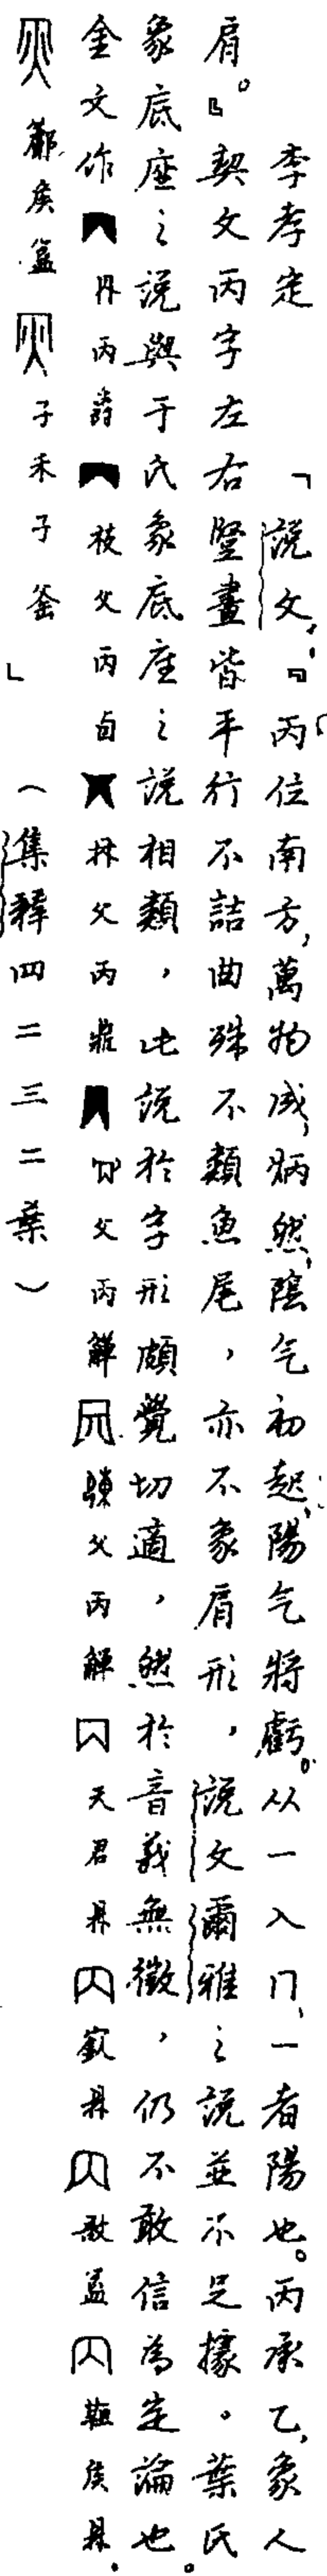 李孝定「說文『丙位南方,萬物成,炳然,陰气初起,陽气將虧。从一入冂,一者陽也。丙承乙,象人
肩。』契文丙字左右豎畫皆平行不詰曲殊不類魚尾,亦不象肩形,說文爾雅之說並不足據。葉氏
象底座之說與于氏象底座之說相類,此說於字形頗覺切適,然於音義無徵,仍不敢信為定論也。
金文作 丙爵 父丙卣 父丙鼎 父丙觶 父丙觶 天君鼎 鼎 簋 侯鼎
鄦侯簋 子禾子釜」(集釋四二三二葉)